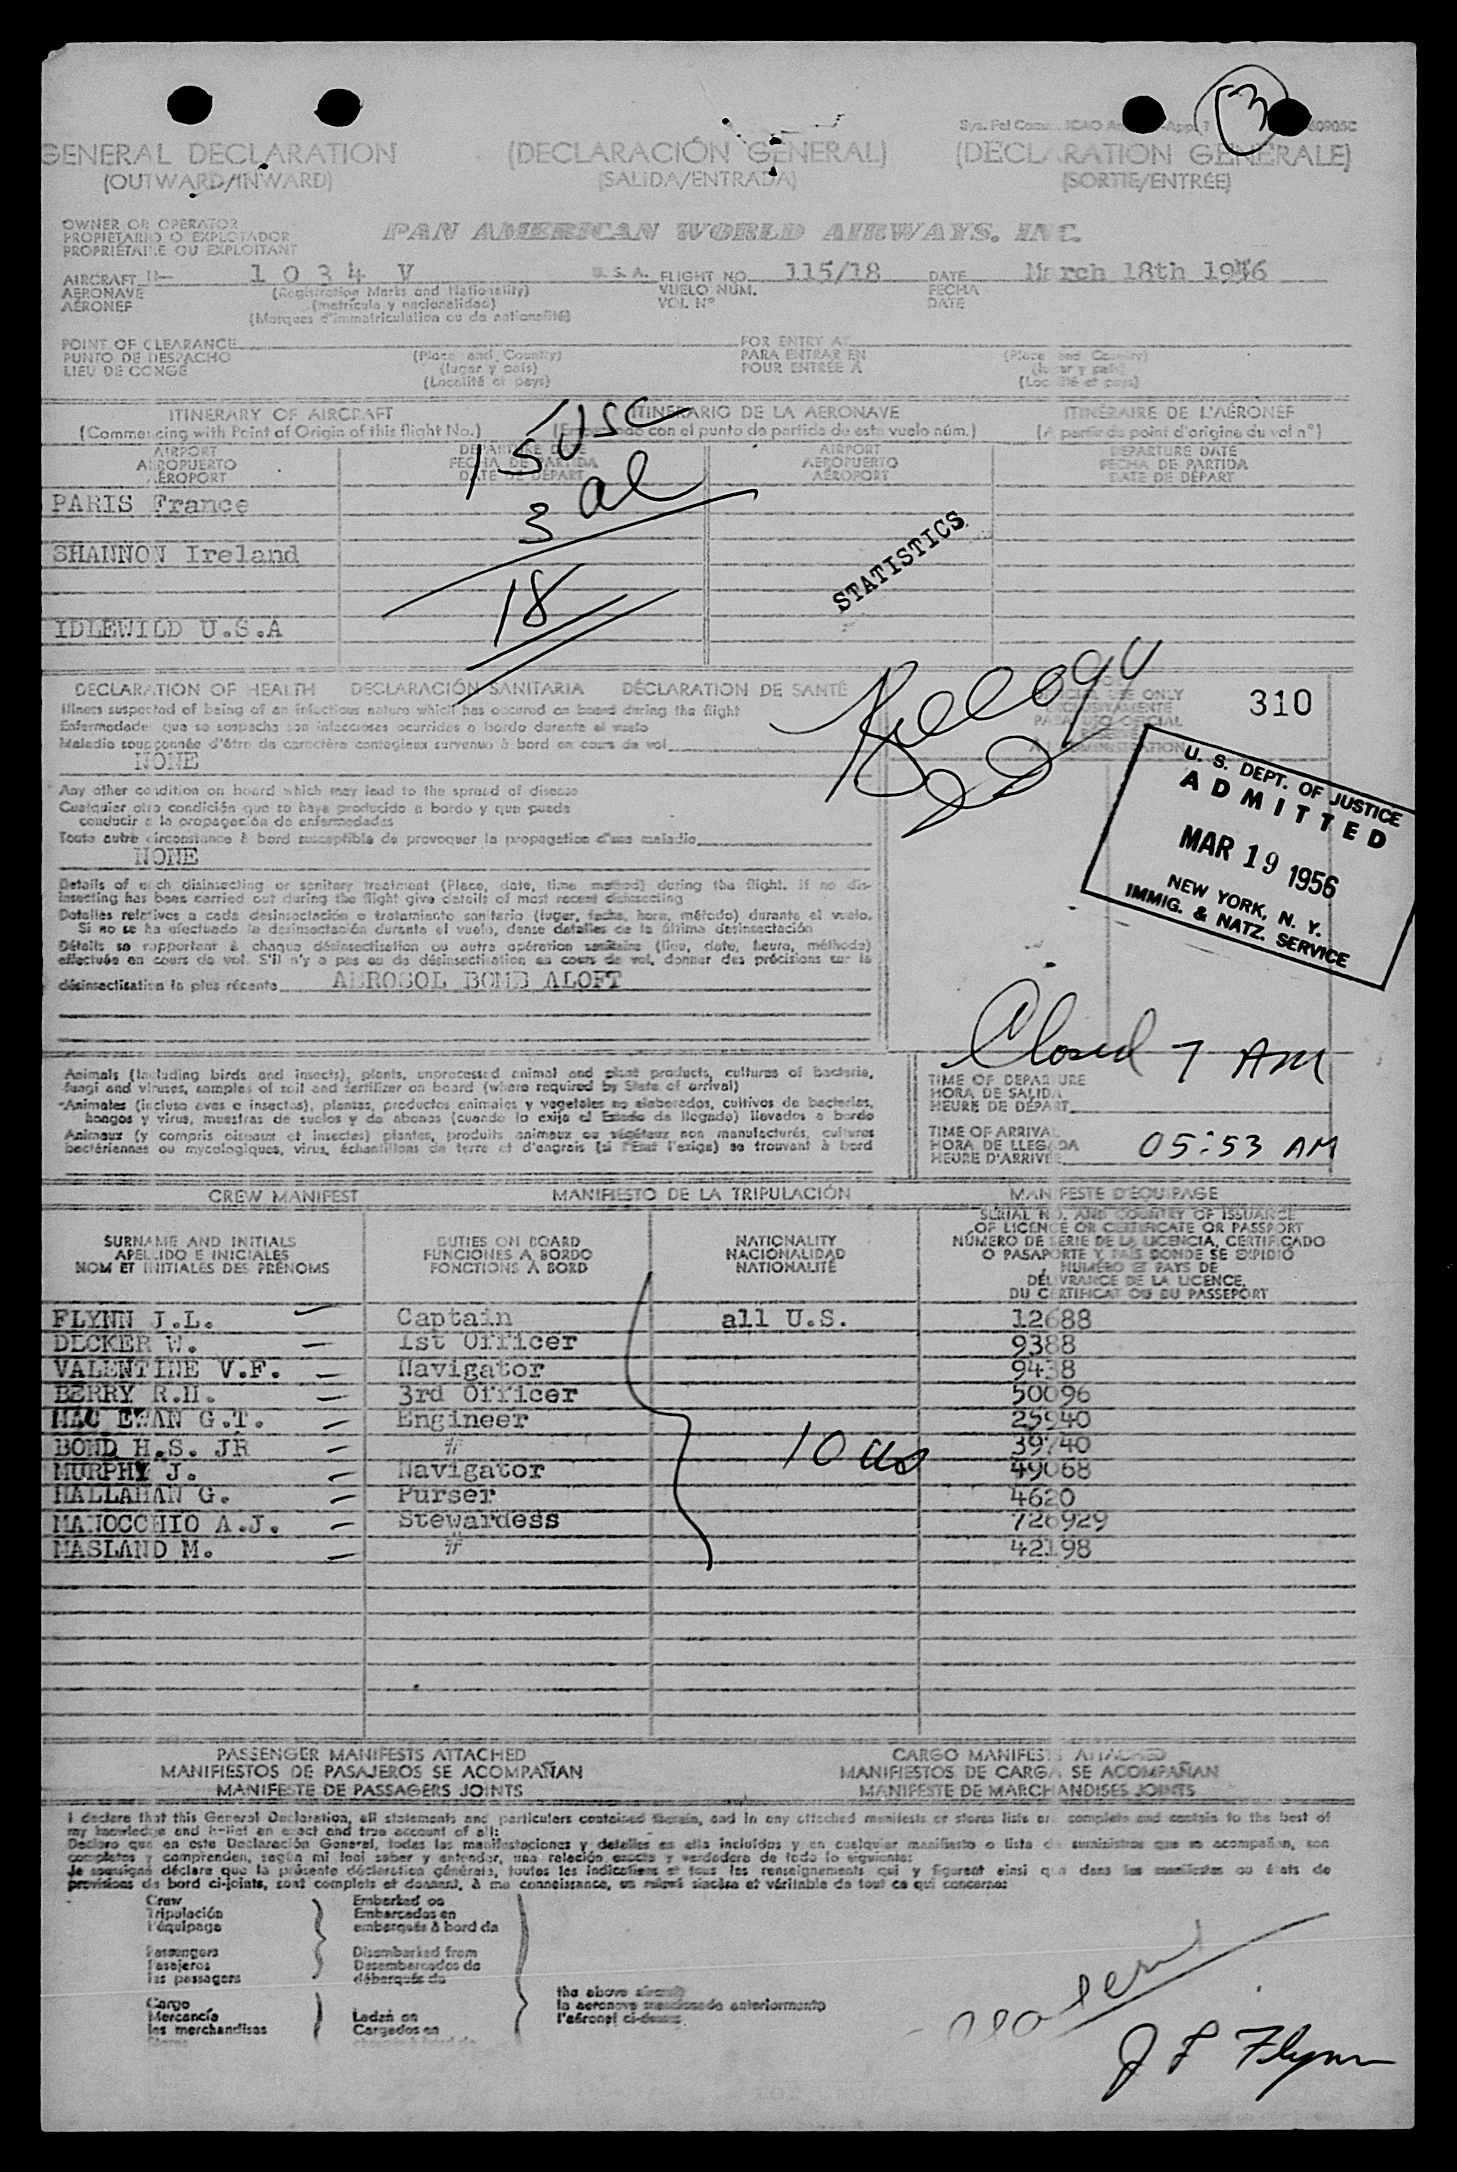 GENERAL DECLARATION (DECLARACIÓN GENERAL) (DECLARATION GÉNÉRALE)
(OUTWARD/INWARD) (SALIDA/ENTRADA) (SORTIE/ENTRÉE)
OWNER OR OPERATOR
PROPIETARIO O EXPLOTADOR PAN AMERICAN WORLD AIRWAYS, INC.
PROPRIÉTAIRE OU EXPLOITANT
AIRCRAFT N- 1 0 3 4 V U. S. A. FLIGHT NO. 115/18 DATE March 18th 1956
AERONAVE (Registration Marks and Nationality) VUELO NÚM. FECHA
AÉRONEF (matrícula y nacionalidad) VOL N° DATE
(Marques d'immatriculation ou de nationalité)
POINT OF CLEARANCE FOR ENTRY AT
PUNTO DE DESPACHO (Place and Country) PARA ENTRAR EN (Place and Country)
LIEU DE CONGÉ (lugar y país) POUR ENTRÉE À (lugar y país)
(Localité et pays) (Localité et pays)
ITINERARY OF AIRCRAFT ITINERARIO DE LA AERONAVE ITINÉRAIRE DE L'AÉRONEF
(Commencing with Point of Origin of this flight No.) (Empezando con el punto de partida de este vuelo núm.) (A partir du point d'origine du vol n°)
AIRPORT DEPARTURE DATE AIRPORT DEPARTURE DATE
AEROPUERTO FECHA DE PARTIDA AEROPUERTO FECHA DE PARTIDA
AÉROPORT DATE DE DÉPART AÉROPORT DATE DE DÉPART
15 USC
3 al
18
PARIS France
SHANNON Ireland
STATISTICS
IDLEWILD U.S.A
DECLARATION OF HEALTH DECLARACIÓN SANITARIA DÉCLARATION DE SANTÉ
OFFICIAL USE ONLY
EXCLUSIVAMENTE
PARA USO OFICIAL
310
Illness suspected of being of an infectious nature which has occured on board during the flight
Enfermedades que se sospecha son infecciosas ocurridas a bordo durante el vuelo
Maladie soupçonnée d'être de caractère contagieux survenue à bord en cours de vol
NONE
Any other condition on board which may lead to the spread of disease
Cualquier otra condición que se haya producido a bordo y que pueda
conducir a la propagación de enfermedades
Toute autre circonstance à bord susceptible de provoquer la propagation d'une maladie
NONE
U. S. DEPT. OF JUSTICE
ADMITTED
MAR 19 1956
NEW YORK, N. Y.
IMMIG. & NATZ. SERVICE
Details of each disinsecting or sanitary treatment (Place, date, time method) during the flight. If no dis-
insecting has been carried out during the flight give details of most recent disinsecting
Detalles relativos a cada desinsectación o tratamiento sanitario (lugar, fecha, hora, método) durante el vuelo.
Si no se ha efectuado la desinsectación durante el vuelo, dense detalles de la última desinsectación
Détails se rapportant à chaque désinsectisation ou autre opération sanitaire (lieu, date, heure, méthode)
effectuée en cours de vol. S'il n'y a pas eu de désinsectisation en cours de vol, donner des précisions sur la
désinsectisation la plus récente AEROSOL BOMB ALOFT
Closed 7 AM
Animals (including birds and insects), plants, unprocessed animal and plant products, cultures of bacteria,
fungi and viruses, samples of soil and fertilizer on board (where required by State of arrival)
Animales (incluso aves e insectos), plantas, productos animales y vegetales no elaborados, cultivos de bacterias,
hongos y virus, muestras de suelos y de abonos (cuando lo exija el Estado de llegada) llevados a bordo
Animaux (y compris oiseaux et insectes) plantes, produits animaux ou végétaux non manufacturés, cultures
bactériennes ou mycologiques, virus, échantillons de terre et d'engrais (si l'État l'exige) se trouvant à bord
TIME OF DEPARTURE
HORA DE SALIDA
HEURE DE DÉPART
TIME OF ARRIVAL
HORA DE LLEGADA 05:53 AM
HEURE D'ARRIVÉE
CREW MANIFEST MANIFIESTO DE LA TRIPULACIÓN MANIFESTE D'ÉQUIPAGE
SURNAME AND INITIALS
APELLIDO E INICIALES
NOM ET INITIALES DES PRÉNOMS
DUTIES ON BOARD
FUNCIONES A BORDO
FONCTIONS À BORD
NATIONALITY
NACIONALIDAD
NATIONALITÉ
SERIAL NO. AND COUNTRY OF ISSUANCE
OF LICENCE OR CERTIFICATE OR PASSPORT
NÚMERO DE SERIE DE LA LICENCIA, CERTIFICADO
O PASAPORTE Y PAÍS DONDE SE EXPIDIÓ
NUMÉRO ET PAYS DE
DÉLIVRANCE DE LA LICENCE,
DU CERTIFICAT OU DU PASSEPORT
FLYNN J.L. Captain all U.S. 12688
DECKER W. 1st Officer 9388
VALENTINE V.F. Navigator 9438
BERRY R.H. 3rd Officer 50096
MAC EWAN G.T. Engineer 25940
BOND H.S. JR " 10 us 39740
MURPHY J. Navigator 49068
HALLAHAN G. Purser 4620
MANOCCHIO A.J. Stewardess 726929
MASLAND M. " 42198
PASSENGER MANIFESTS ATTACHED CARGO MANIFESTS ATTACHED
MANIFIESTOS DE PASAJEROS SE ACOMPAÑAN MANIFIESTOS DE CARGA SE ACOMPAÑAN
MANIFESTE DE PASSAGERS JOINTS MANIFESTE DE MARCHANDISES JOINTS
I declare that this General Declaration, all statements and particulars contained therein, and in any attached manifests or stores lists are complete and contain to the best of
my knowledge and belief an exact and true account of all:
Declaro que en esta Declaración General, todas las manifestaciones y detalles en ella incluidos y en cualquier manifiesto o lista de suministros que se acompañan, son
completos y comprenden, según mi leal saber y entender, una relación exacta y verdadera de todo lo siguiente:
Je soussigné déclare que la présente déclaration générale, toutes les indications et tous les renseignements qui y figurent ainsi que dans les manifestes ou états de
provisions de bord ci-joints, sont complets et donnent, à ma connaissance, un relevé sincère et véritable de tout ce qui concerne:
Crew Embarked on
Tripulación Embarcados en
l'équipage embarqués à bord de
Passengers Disembarked from
Pasajeros Desembarcados de
les passagers débarqués de
the above aircraft
Cargo la aeronave mencionada anteriormente
Mercancía Laden on l'aéronef ci-dessus
les merchandises Cargados en
J L Flynn